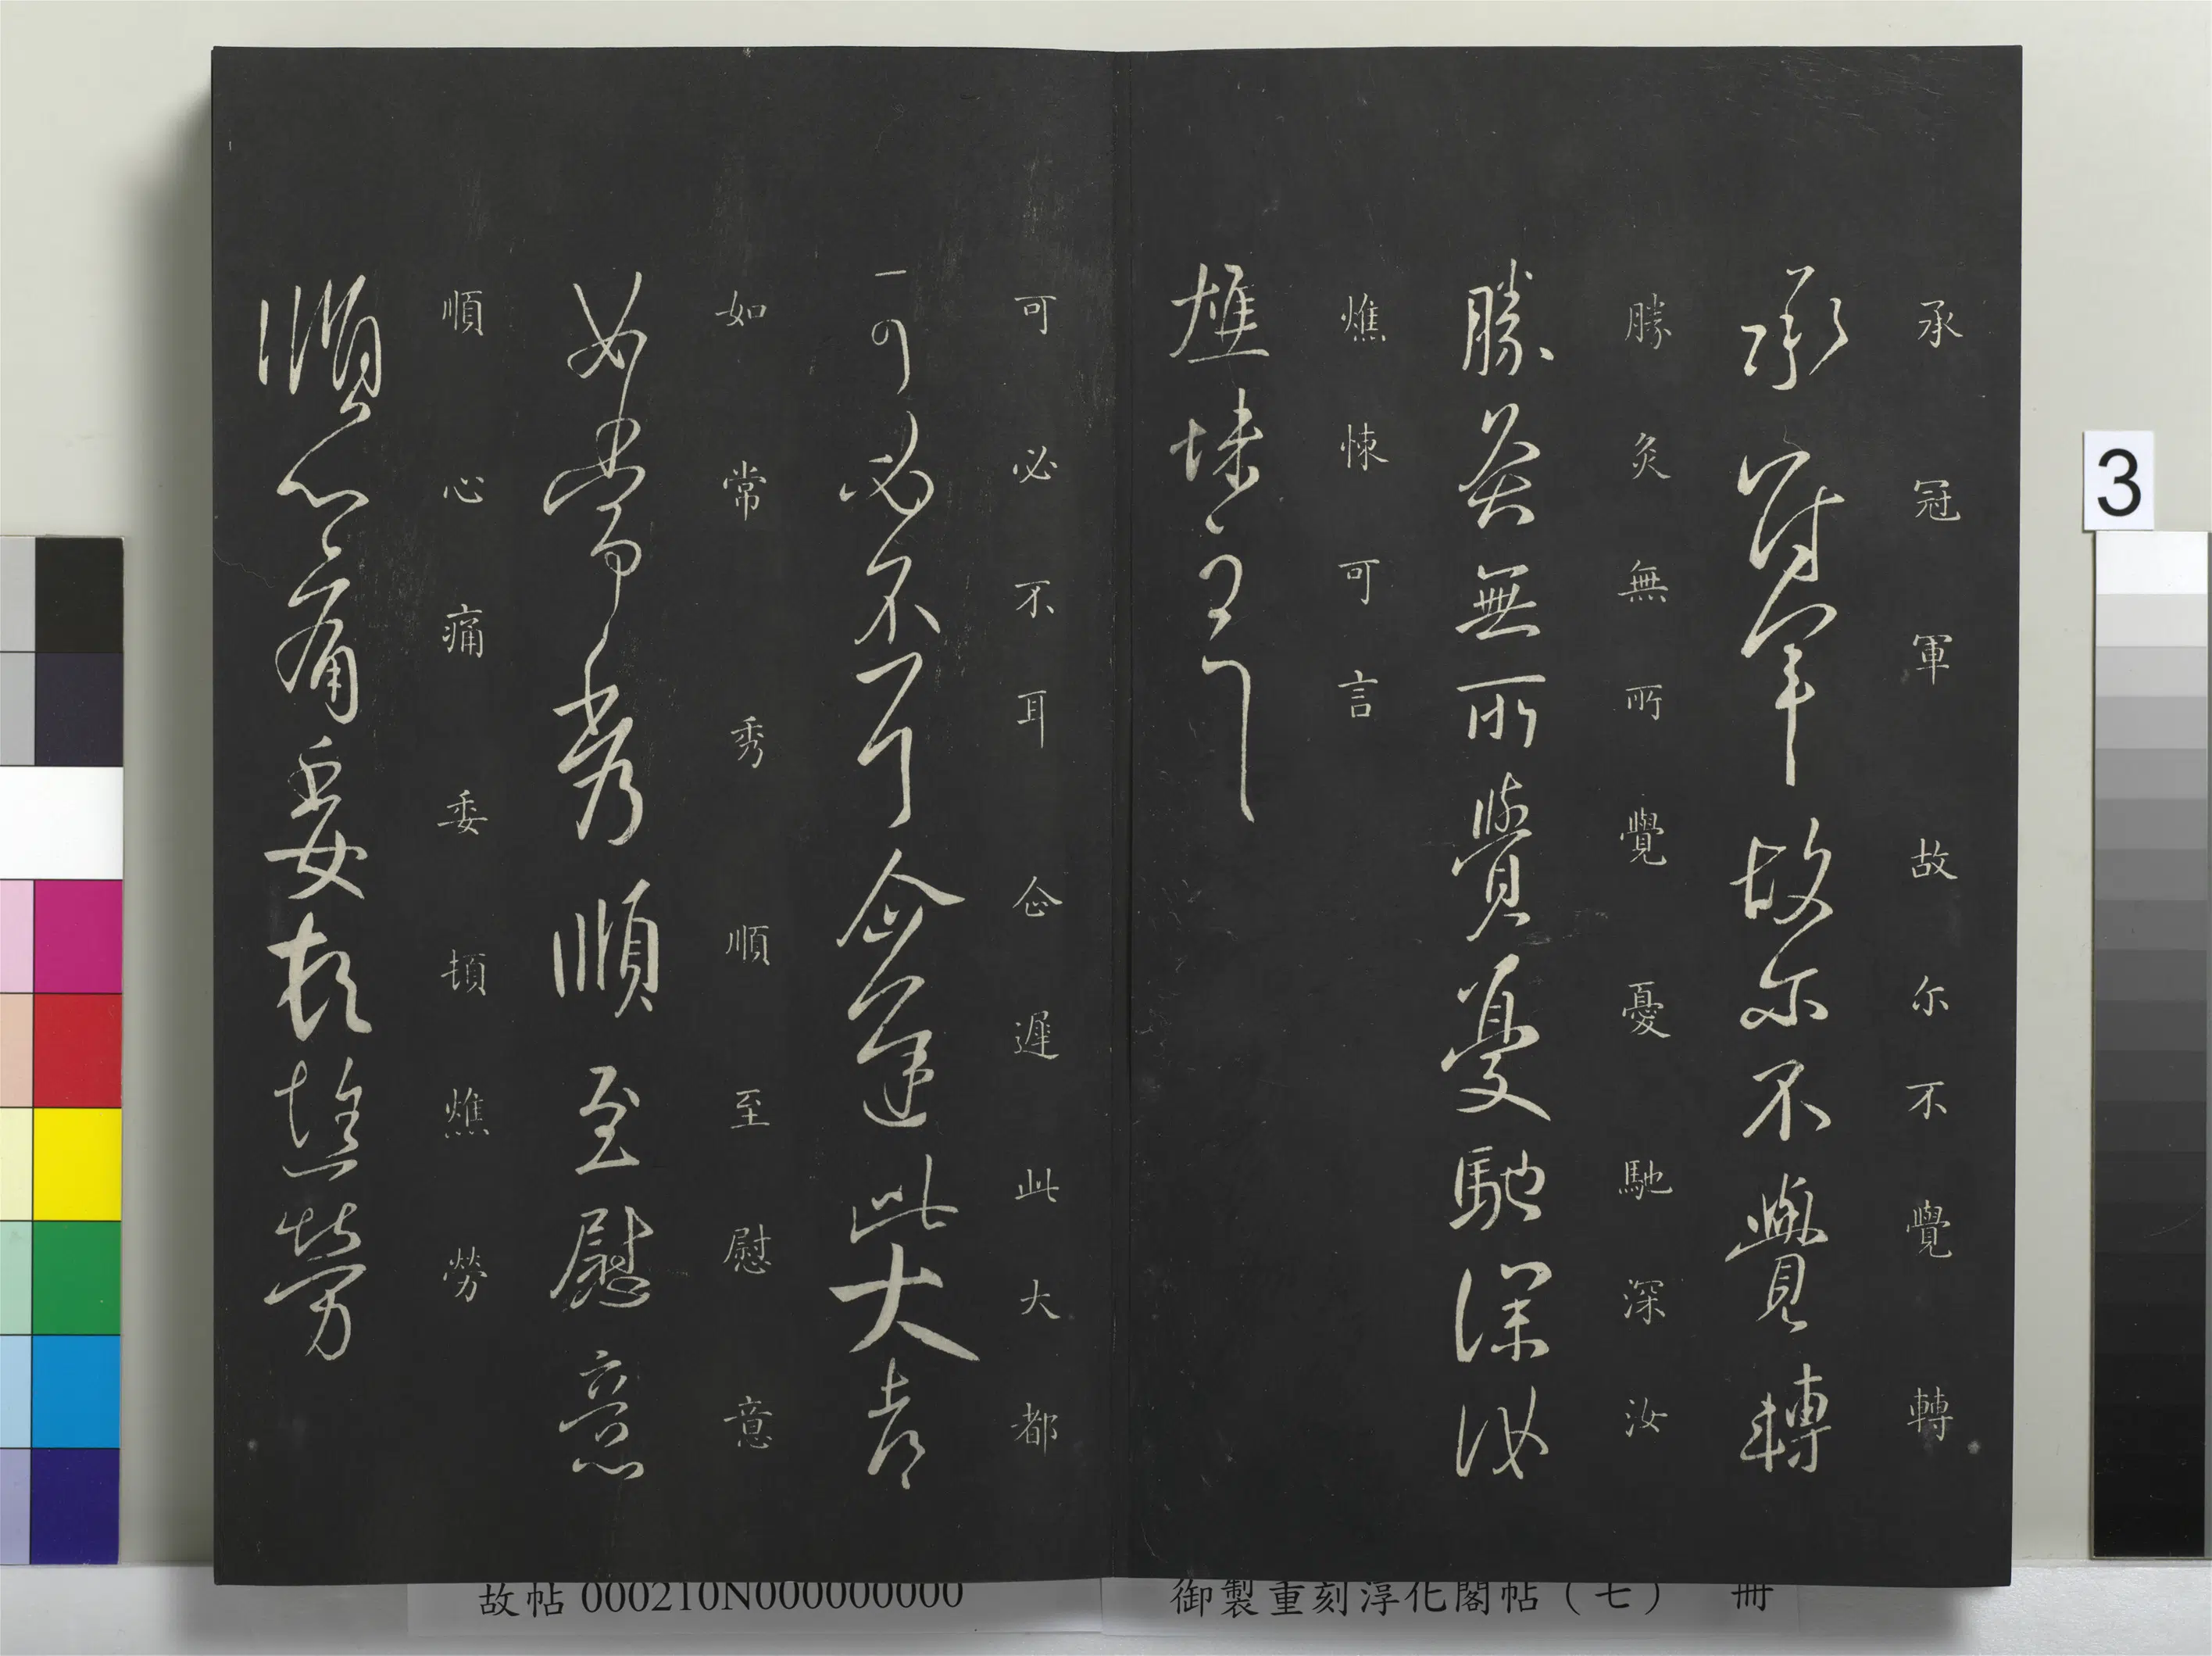 承冠軍故尓不覺轉
承冠軍故尓不覺轉
勝灸無所覺憂馳深汝
勝灸無所覺憂馳深汝
燋悚可言
燋悚可言
可必不耳企遲此大都
可必不耳企遲此大都
如常秀順至慰意
如常秀順至慰意
順心痛委頓燋勞
順心痛委頓燋勞
3
御製重刻淳化閣帖(七) 冊
故帖000210N000000000